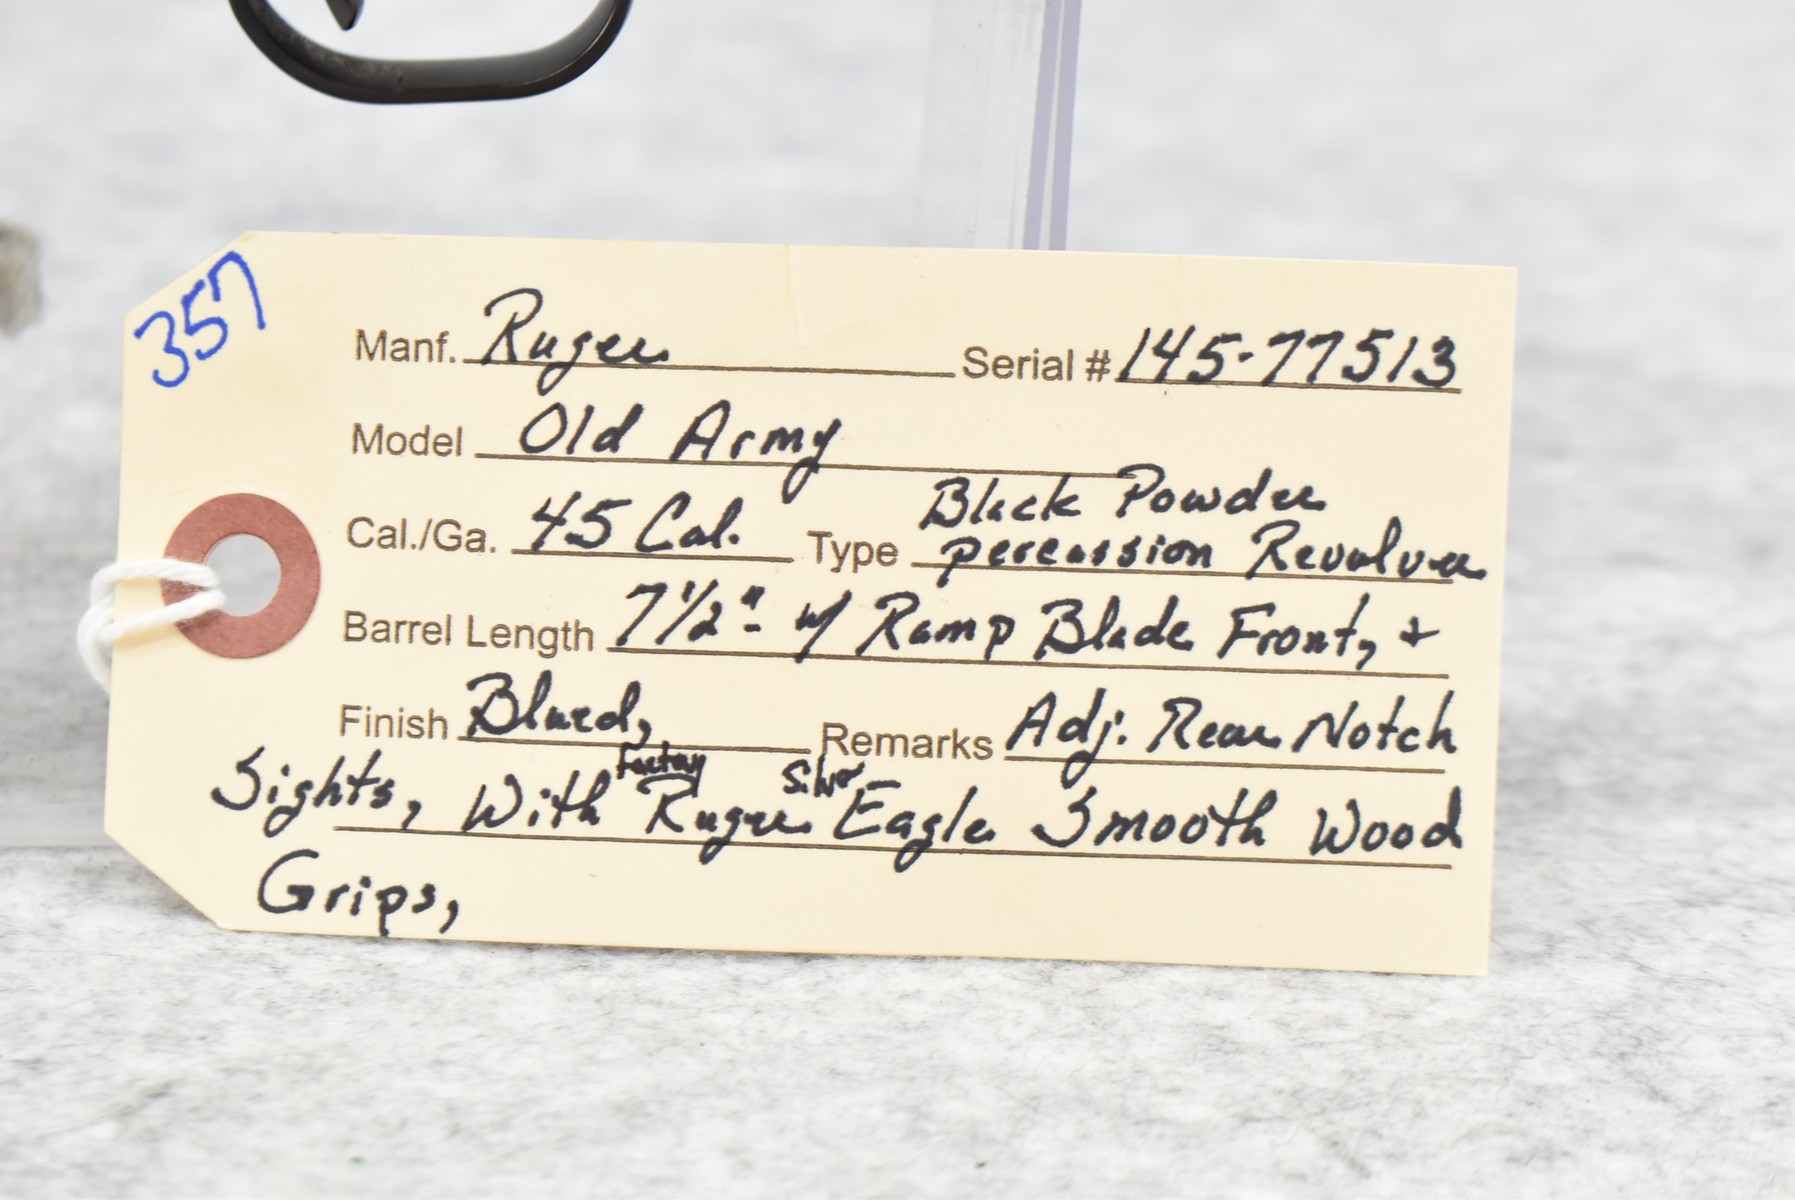 357
Manf. Ruger Serial # 145-77513
Model Old Army
Cal./Ga. 45 Cal. Type Black Powder
percussion Revolver
Barrel Length 7 1/2" - w/ Ramp Blade Front, +
Finish Blued, Remarks Adj. Rear Notch
Sights, With Factory Ruger Silver Eagle Smooth Wood
Grips,